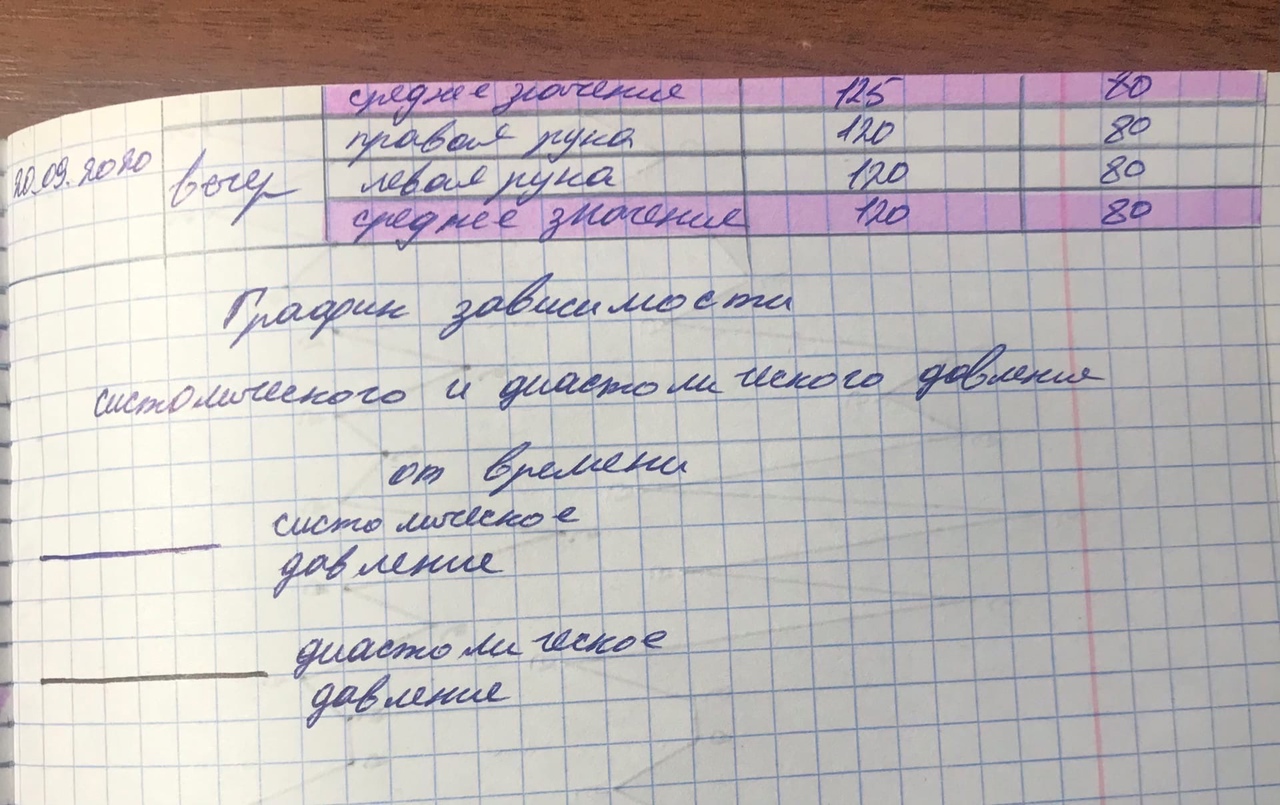 среднее значение 125 80
правая рука 120 80
20.09.2020 вечер левая рука 120 80
среднее значение 120 80
График зависимости
систолического и диастолического давления
от времени
систолическое
давление
диастолическое
давление